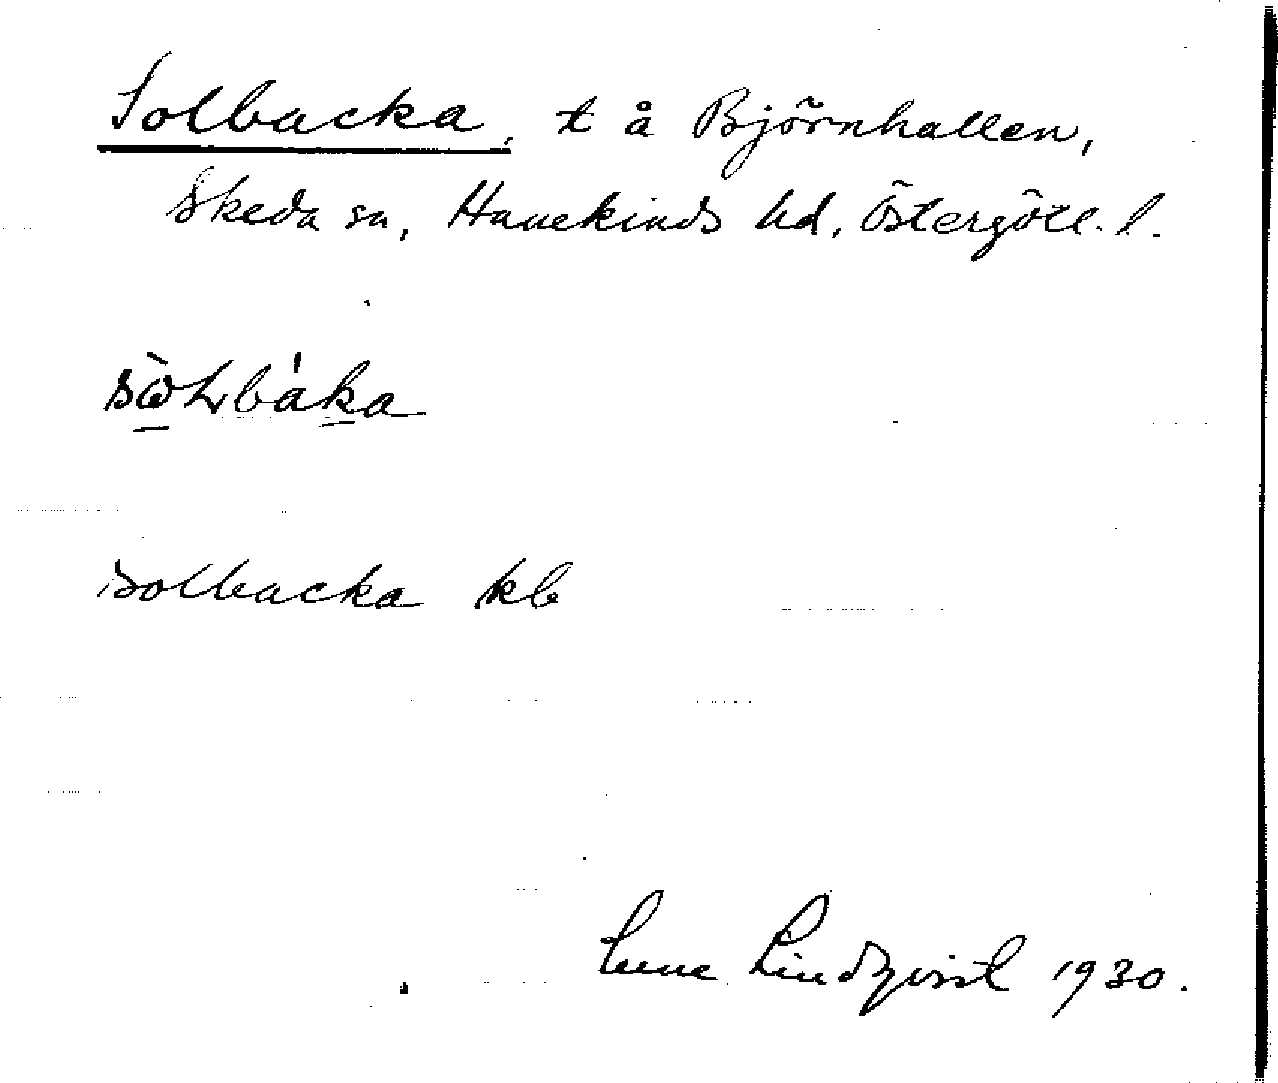 Solbacka, t å Björnhallen,
Skeda sn, Hanekinds hd, Östergötl. l.
sὼLbáka
Solbacka kb
Sune Lindqvist 1930.